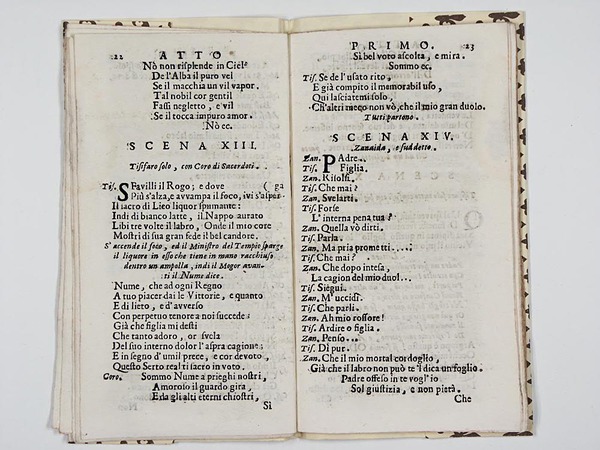 22 ATTO
Nò non risplende in Ciel
De l'Alba il puro vel
Se il macchia un vil vapor.
Tal nobil cor gentil
Fassi negletto, e vil
Se il tocca impuro amor.
Nò ec.
SCENA XIII.
Tisifaro solo, con Coro di Sacerdoti.
Tis. SFavilli il Rogo; e dove (ga
Più s'alza, e avvampa il foco, ivi s'asper-
Il sacro di Lieo liquor spumante:
Indi di bianco latte, il Nappo aurato
Libi tre volte il labro: Onde il mio core
Mostri di sua gran fede il bel candore.
S' accende il foco, ed il Ministro del Tempio sparge
il liquore in esso che tiene in mano racchiuso
dentro un ampolla, indi il Mogor avan-
ti il Nume dice.
Nume, che ad ogni Regno
A tuo piacer dai le Vittorie, e quanto
E di lieto, e d'avverso
Con perpetuo tenore a noi succede:
Già che figlia mi desti
Che tanto adoro, or svela
Del suo interno dolor l'aspra cagione;
E in segno d'umil prece, e cor devoto,
Questo Serto real ti sacro in voto.
Coro. Sommo Nume a prieghi nostri,
Amoroso il guardo gira,
E da gli alti eterni chiostri,
Sì
PRIMO. 23
Sì bel voto ascolta, e mira.
Sommo ec.
Tis. Se de l'usato rito,
E già compito il memorabil uso,
Qui lasciatemi solo,
Ch'altri meco non vò, che il mio gran duolo.
Tutti partono.
SCENA XIV.
Zanaida, e suddetto.
Zan. PAdre.
Tis. Figlia.
Zan. Risolsi.
Tis. Che mai?
Zan. Svelarti.
Tis. Forse
L' interna pena tua?
Zan. Quella vò dirti.
Tis. Parla.
Zan. Ma pria prometti....
Tis. Che mai?
Zan. Che dopo intesa,
La cagion del mio duol...
Tis. Siegui.
Zan. M' uccidi.
Tis. Che parli.
Zan. Ah mio rossore!
Tis. Ardire o figlia.
Zan. Penso...
Tis. Di pur.
Zan. Che il mio mortal cordoglio,
Già che il labro non può te 'l dica un foglio.
Padre offeso in te vogl' io
Sol giustizia, e non pietà.
Che